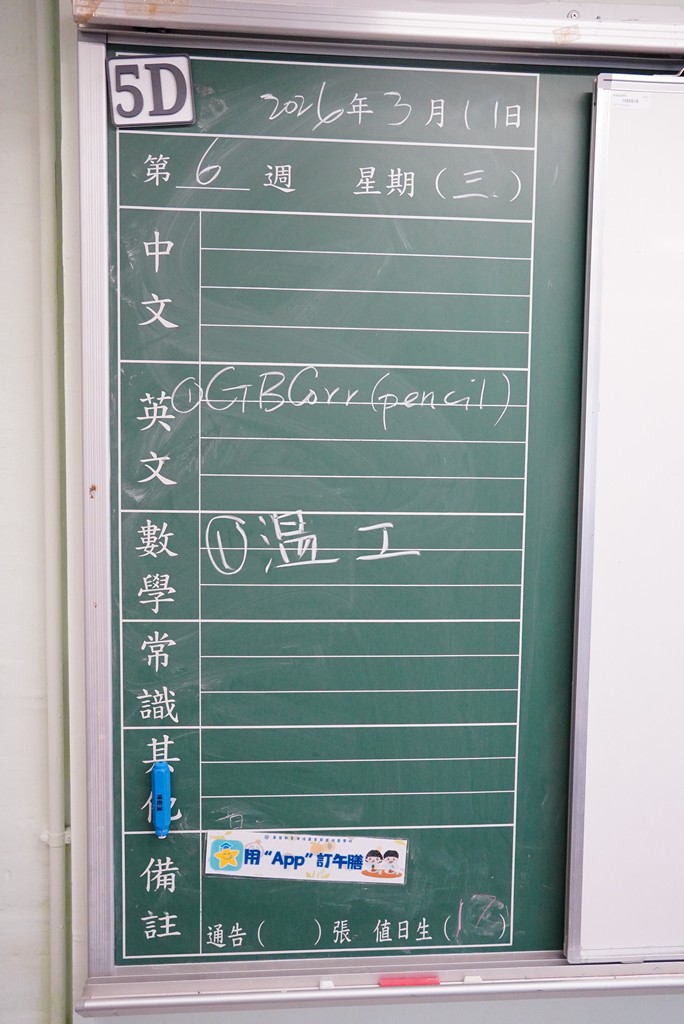 5D
2026年3月11日
第6週 星期(三)
中文
英文 ①GBCorr(pencil)
數學 ①溫工
常識
其他
備註
用“App”訂午膳
通告( )張 值日生(17)